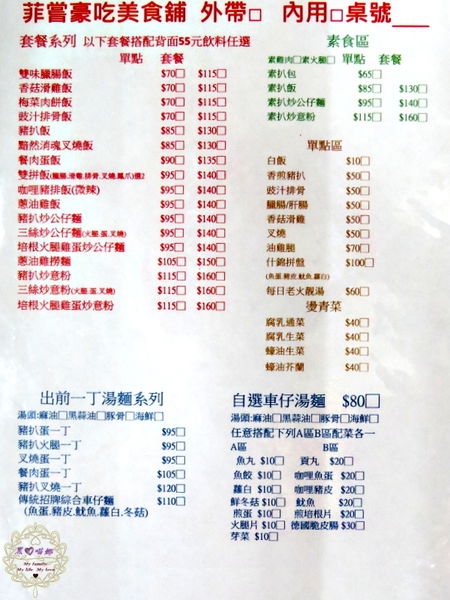 菲嘗豪吃美食舖 外帶□ 內用□桌號___
套餐系列 以下套餐搭配背面55元飲料任選
單點 套餐
雙味臘腸飯 $70□ $115□
香菇滑雞飯 $70□ $115□
梅菜肉餅飯 $70□ $115□
豉汁排骨飯 $70□ $115□
豬扒飯 $85□ $130□
黯然消魂叉燒飯 $85□ $130□
餐肉蛋飯 $90□ $135□
雙拼飯(臘腸.滑雞.排骨.叉燒.鳳爪)選2 $95□ $140□
咖哩豬排飯(微辣) $95□ $140□
蔥油雞飯 $95□ $140□
豬扒炒公仔麵 $95□ $140□
三絲炒公仔麵(火腿.蛋.叉燒) $95□ $140□
培根火腿雞蛋炒公仔麵 $95□ $140□
蔥油雞撈麵 $105□ $150□
豬扒炒意粉 $115□ $160□
三絲炒意粉(火腿.蛋.叉燒) $115□ $160□
培根火腿雞蛋炒意粉 $115□ $160□
素食區
素雞肉□素火腿□ 單點 套餐
素扒包 $65□
素扒飯 $85□ $130□
素扒炒公仔麵 $95□ $140□
素扒炒意粉 $115□ $160□
單點區
白飯 $10□
香煎豬扒 $50□
豉汁排骨 $50□
臘腸/肝腸 $50□
香菇滑雞 $50□
叉燒 $50□
油雞腿 $70□
什錦拼盤 $100□
(魚蛋.豬皮.魷魚.蘿白)
每日老火靚湯 $60□
燙青菜
腐乳通菜 $40□
腐乳生菜 $40□
蠔油生菜 $40□
蠔油芥蘭 $40□
出前一丁湯麵系列
湯頭:麻油□黑蒜油□豚骨□海鮮□
豬扒蛋一丁 $95□
豬扒火腿一丁 $95□
叉燒蛋一丁 $95□
餐肉蛋一丁 $105□
豬扒叉燒一丁 $120□
傳統招牌綜合車仔麵 $110□
(魚蛋.豬皮.魷魚.蘿白.冬菇)
自選車仔湯麵 $80□
湯頭:麻油□黑蒜油□豚骨□海鮮□
任意搭配下列A區B區配菜各一
A區 B區
魚丸 $10□ 貢丸 $20□
魚餃 $10□ 咖哩魚蛋 $20□
蘿白 $10□ 咖哩豬皮 $20□
鮮冬菇 $10□ 魷魚 $20□
煎蛋 $10□ 煎培根片 $20□
火腿片 $10□ 德國脆皮腸 $30□
芽菜 $10□
My family
My life My love